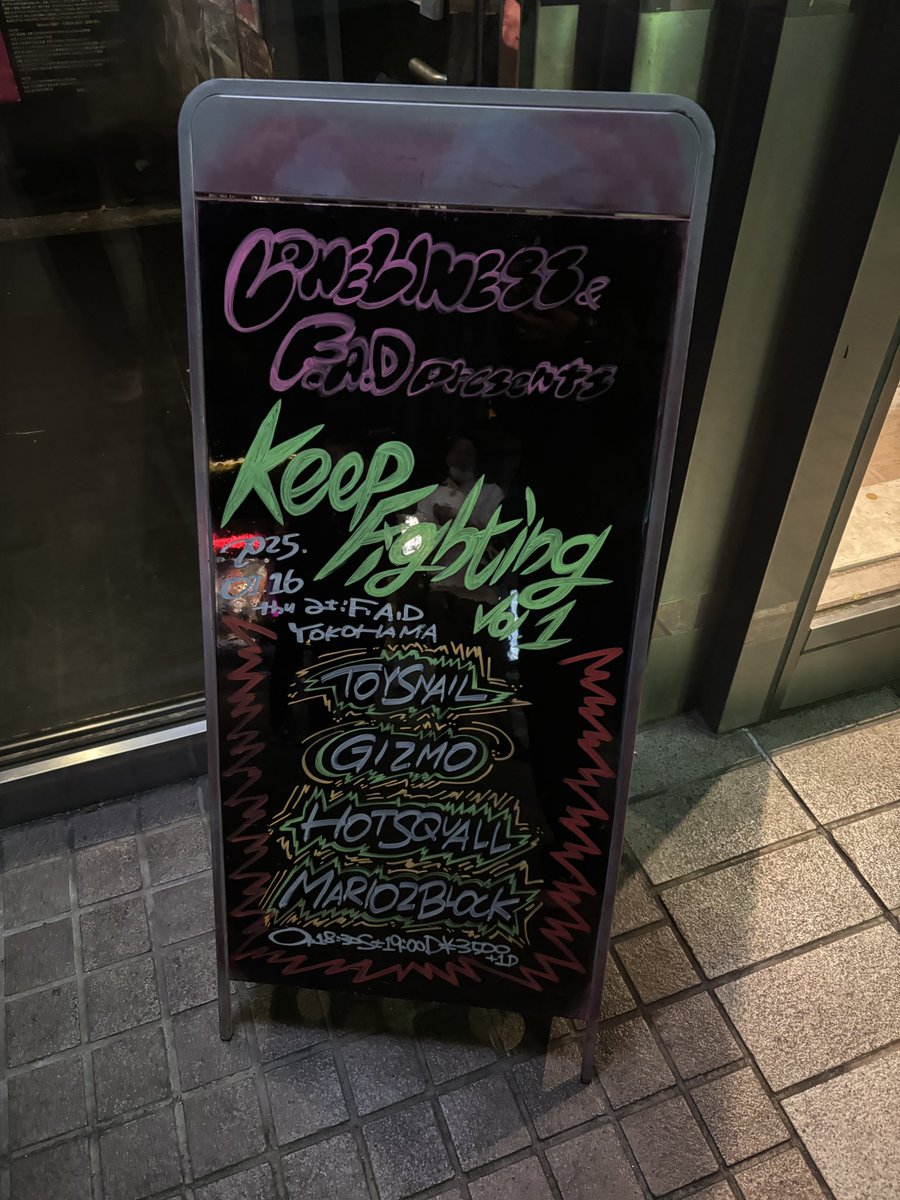 LONELINESS &
F.A.D presents
Keep
Fighting
vol 1
2025.
01 16
thu at: F.A.D
YOKOHAMA
TOYSNAIL
GIZMO
HOTSQUALL
MARIO2BLOCK
O18:30St19:00D¥3500
+1D